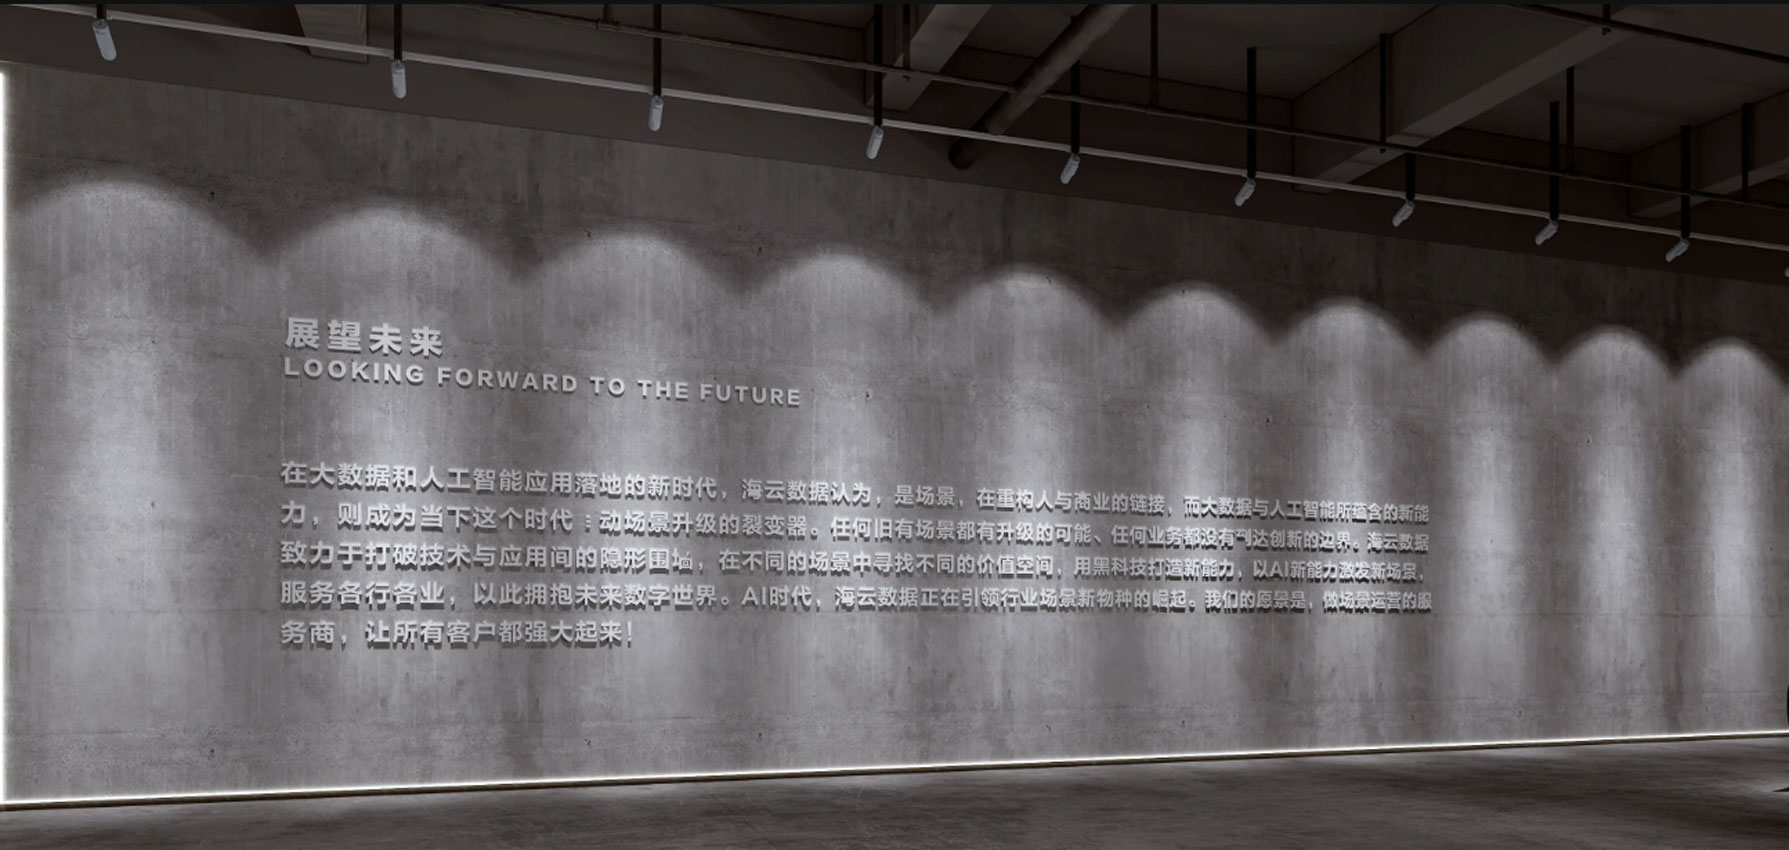 展望未来
LOOKING FORWARD TO THE FUTURE
在大数据和人工智能应用落地的新时代，海云数据认为，是场景，在重构人与商业的链接，而大数据与人工智能所蕴含的新能
力，则成为当下这个时代 动场景升级的裂变器。任何旧有场景都有升级的可能、任何业务都没有 达创新的边界。海云数据
致力于打破技术与应用间的隐形围墙，在不同的场景中寻找不同的价值空间，用黑科技打造新能力，以AI新能力激发新场景，
服务各行各业，以此拥抱未来数字世界。AI时代，海云数据正在引领行业场景新物种的崛起。我们的愿景是，做场景运营的服
务商，让所有客户都强大起来！